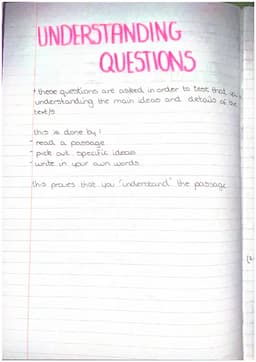 UNDERSTANDING
QUESTIONS
* these questions are asked in order to test that you
understanding the main ideas and details of the
text/s
this is done by:
- read a passage
- pick out specific ideas
- write in your own words
this proves that you "understand" the passage